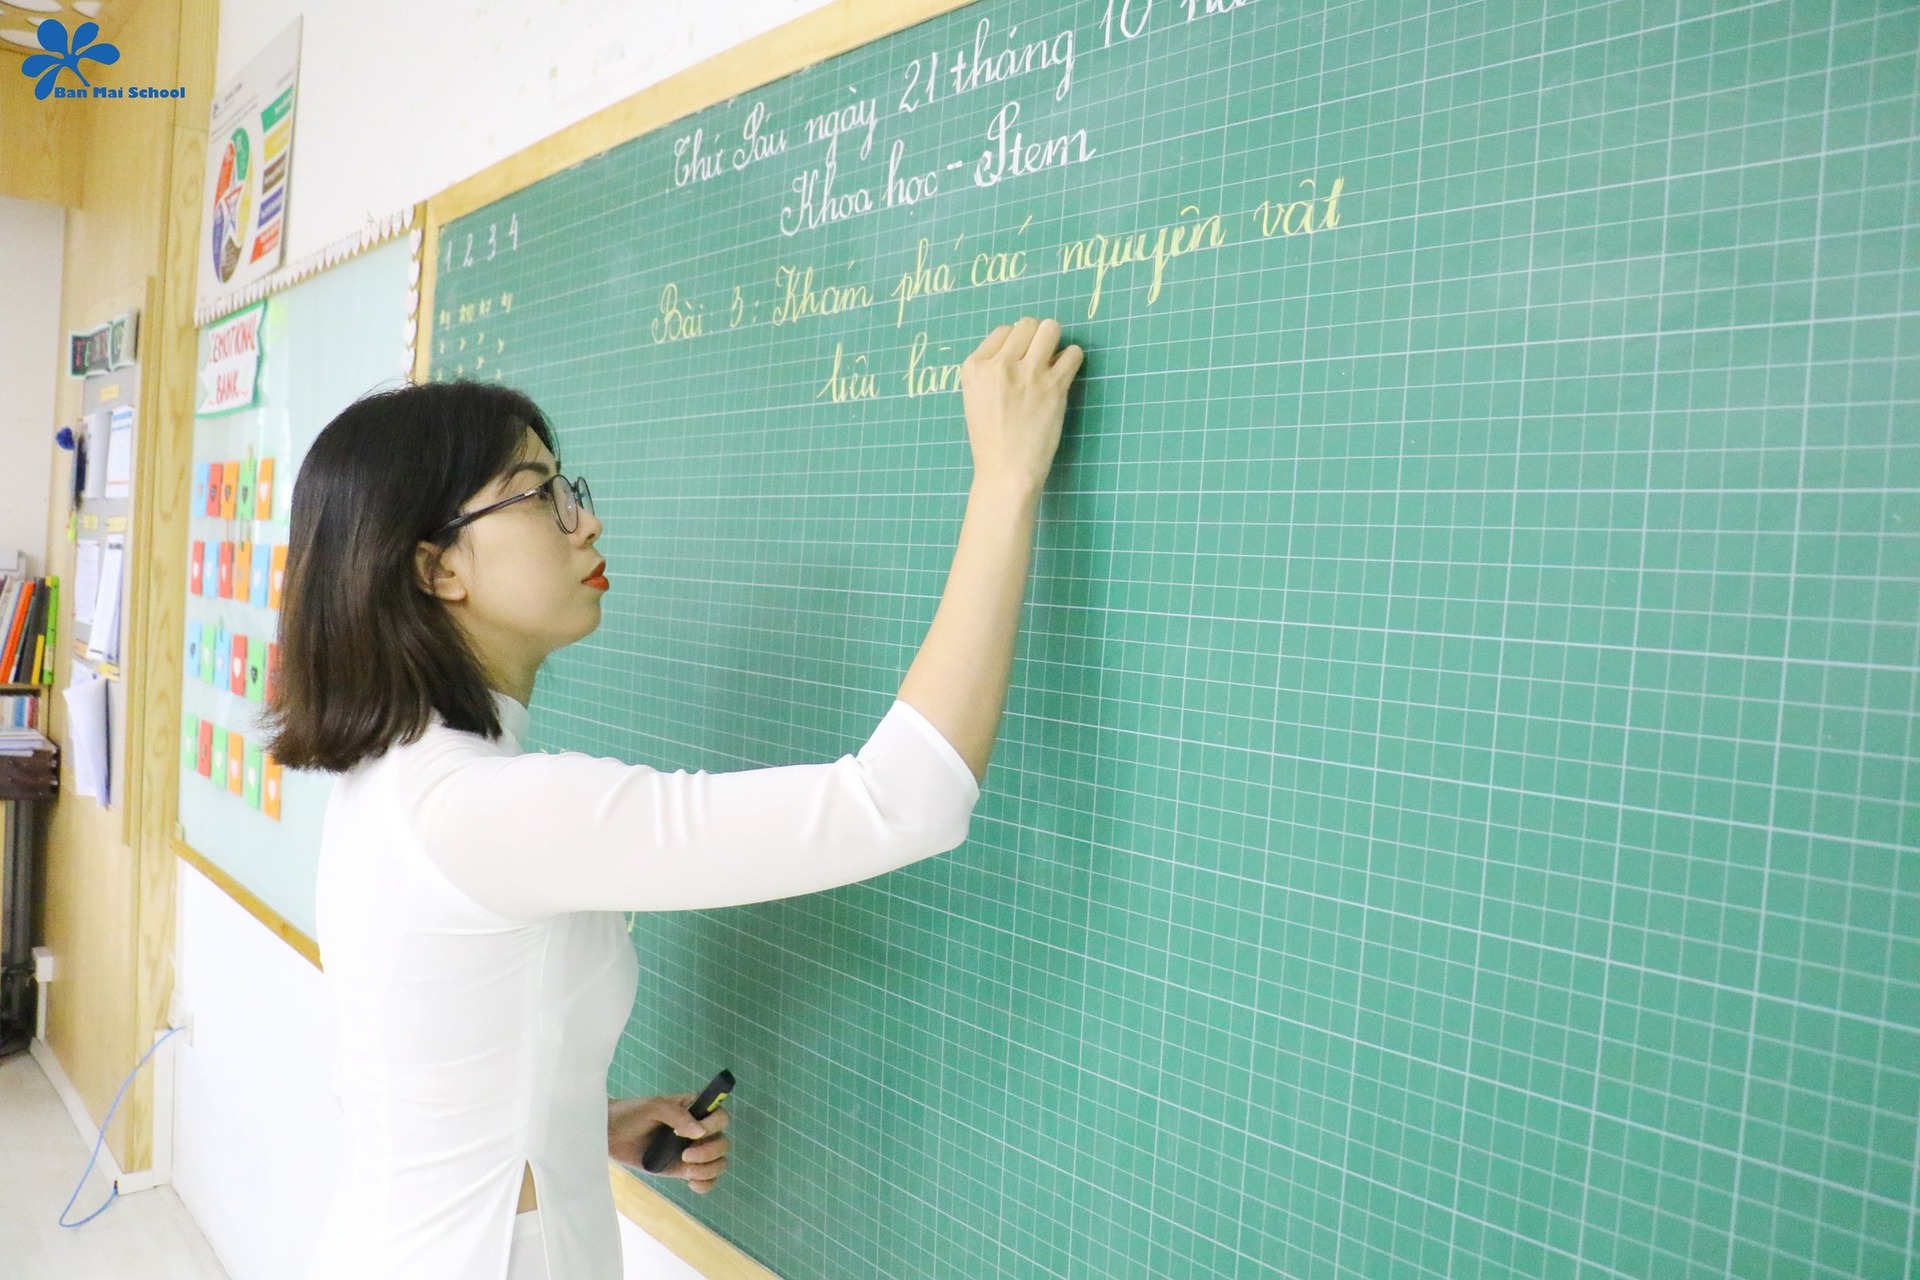 Ban Mai School
Thứ Sáu ngày 21 tháng 10
Khoa học - Stem
1 2 3 4
Bài 3: Khám phá các nguyên vật
liệu làm
EMOTIONAL
BANK